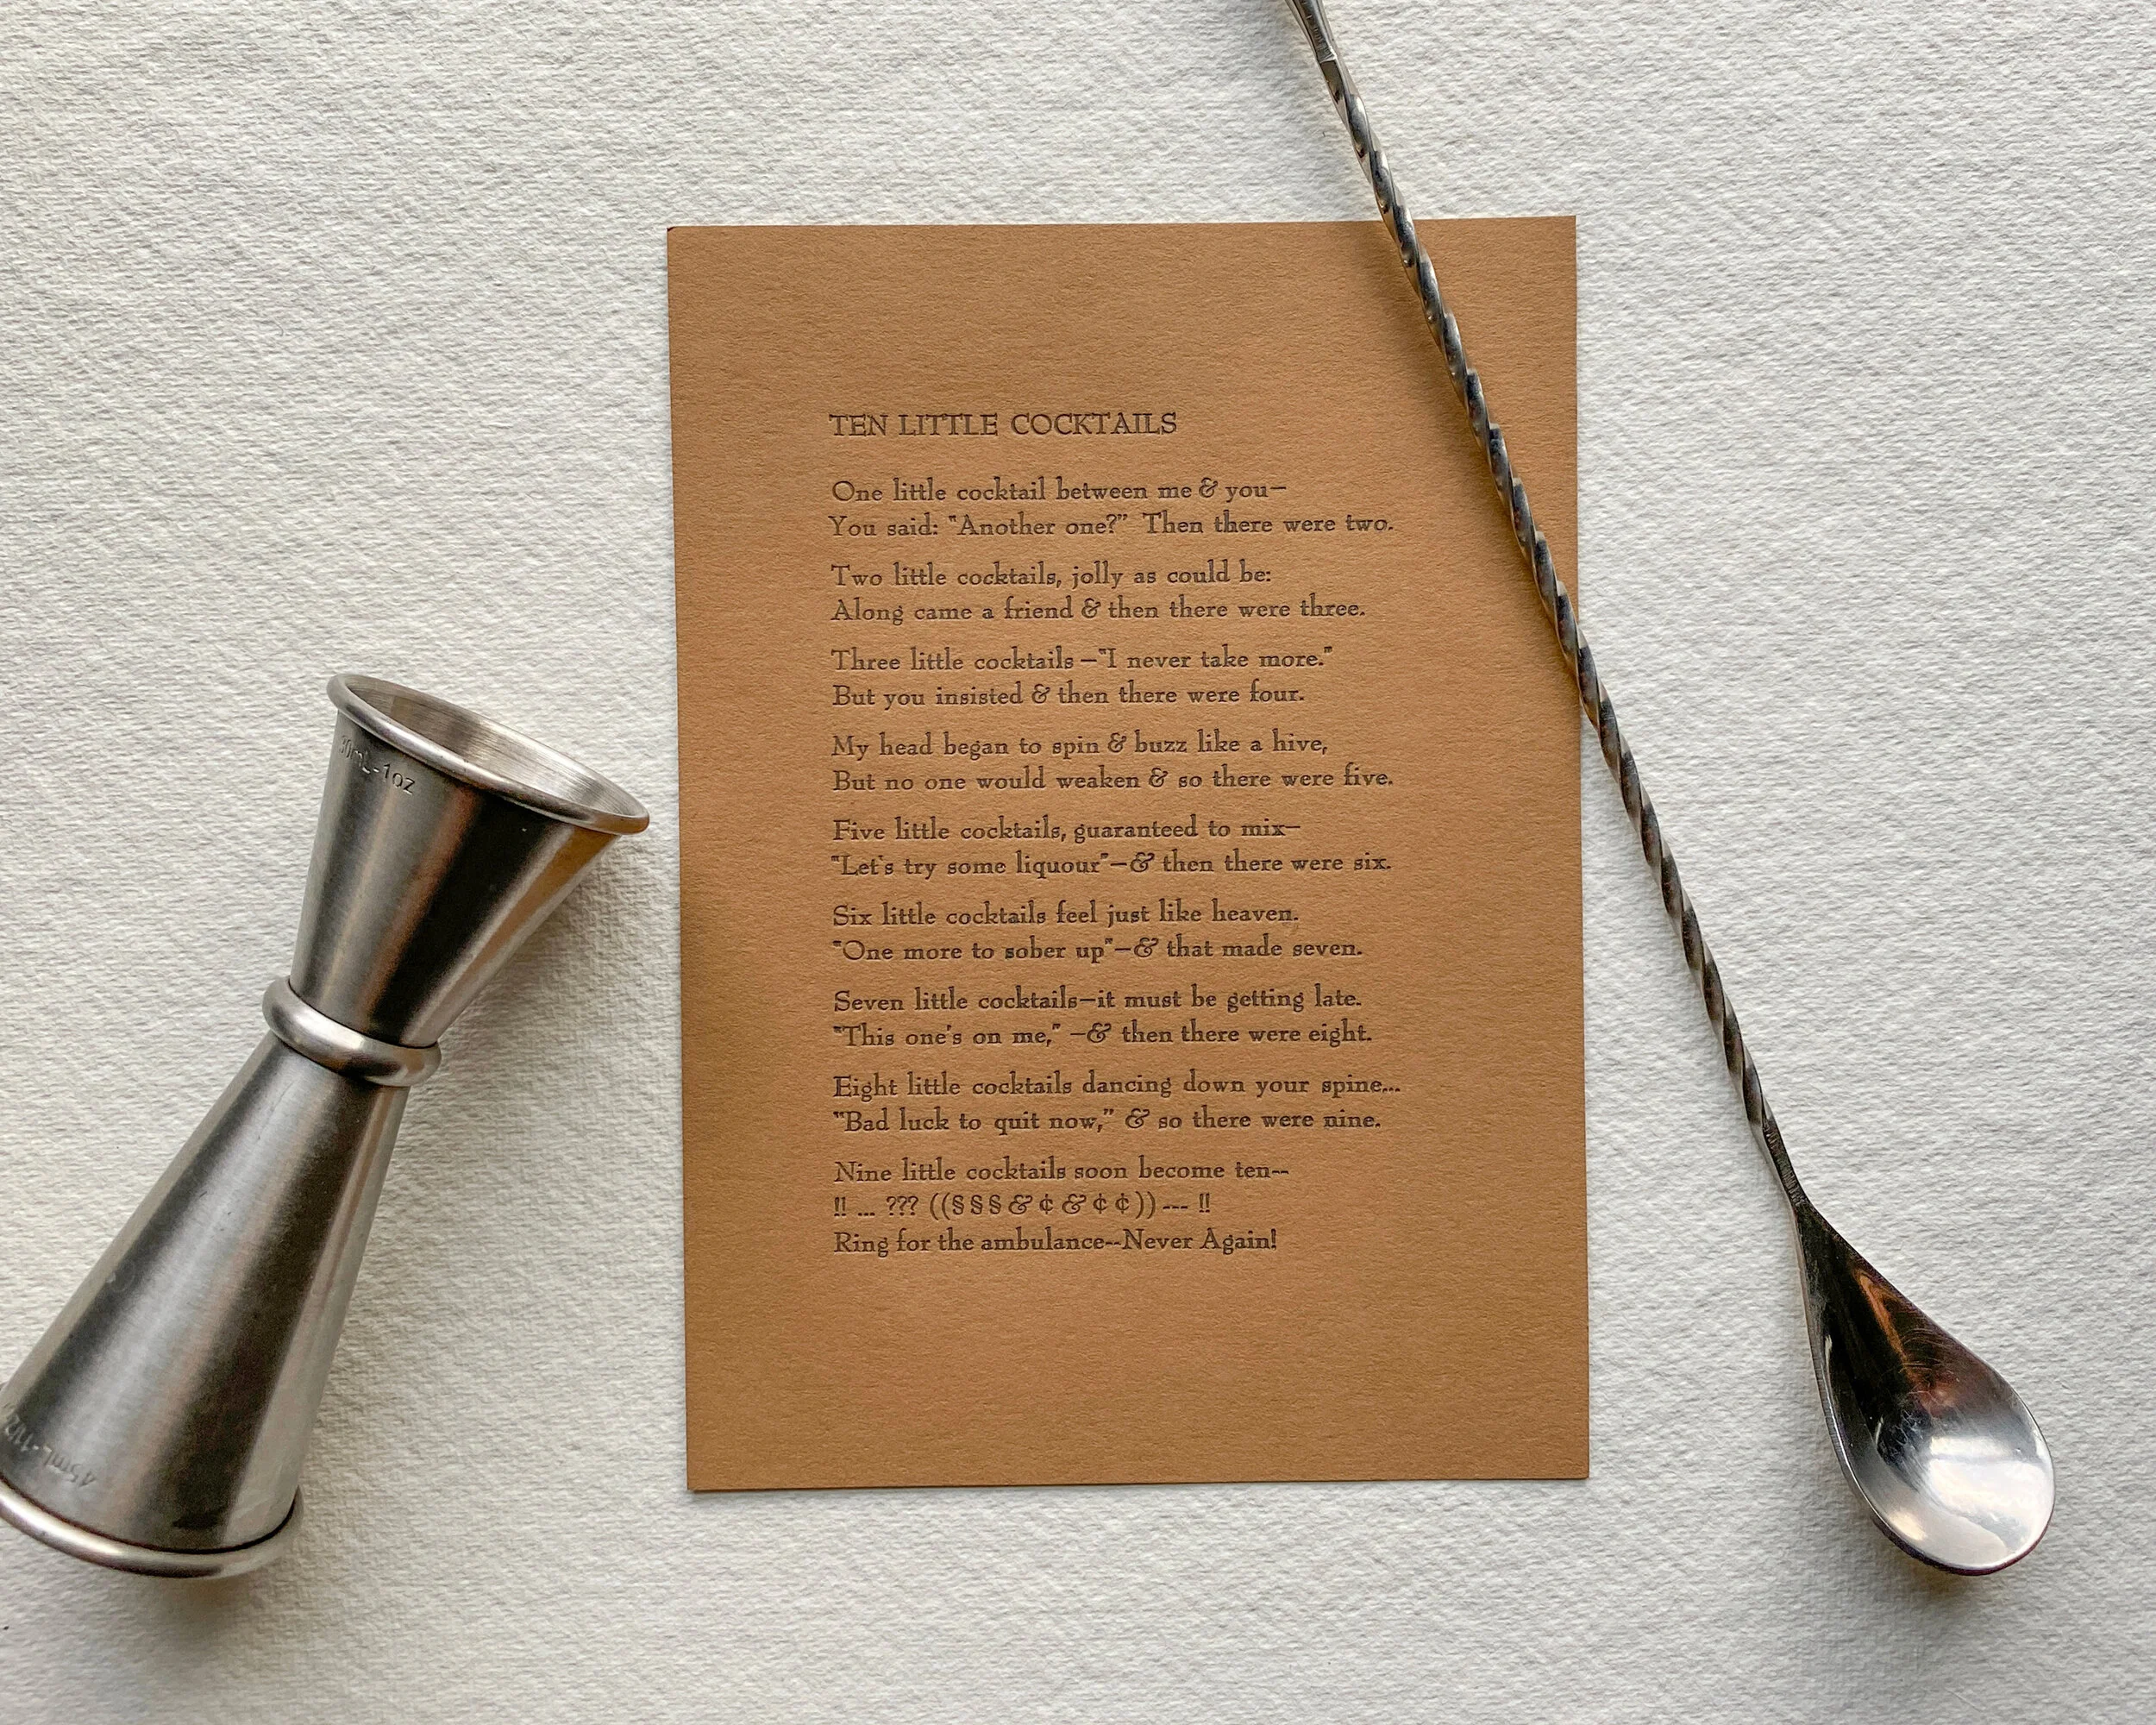 TEN LITTLE COCKTAILS
One little cocktail between me & you—
You said: "Another one?" Then there were two.
Two little cocktails, jolly as could be:
Along came a friend & then there were three.
Three little cocktails—"I never take more."
But you insisted & then there were four.
My head began to spin & buzz like a hive,
But no one would weaken & so there were five.
Five little cocktails, guaranteed to mix—
"Let's try some liquour"—& then there were six.
Six little cocktails feel just like heaven.
"One more to sober up"—& that made seven.
Seven little cocktails—it must be getting late.
"This one's on me," —& then there were eight.
Eight little cocktails dancing down your spine...
"Bad luck to quit now," & so there were nine.
Nine little cocktails soon become ten--
!! ... ??? ((§§§&¢&¢¢)) --- !!
Ring for the ambulance--Never Again!
30mL-1oz
45mL-11/2